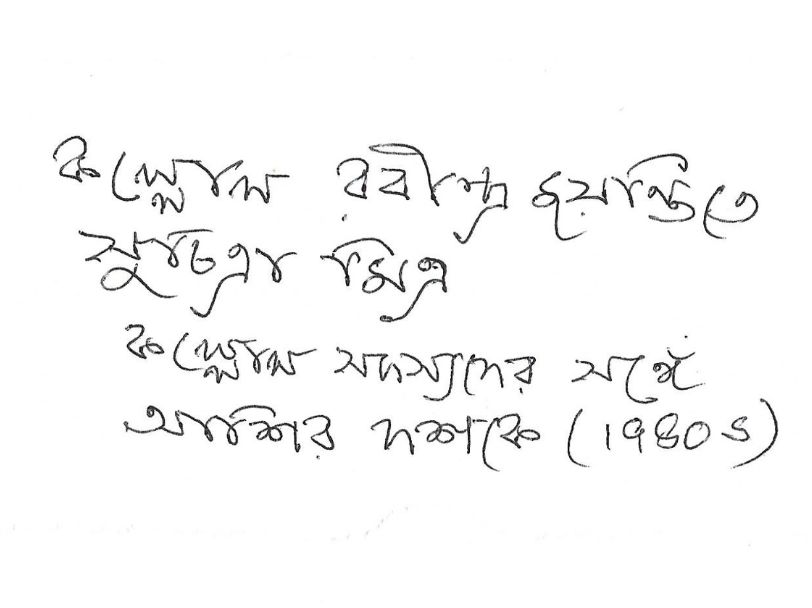 কল্লোল রবীন্দ্র জয়ন্তিতে
সুচিত্রা মিত্র
কল্লোল সদস্যদের সঙ্গে
আশির দশকে (1980s)